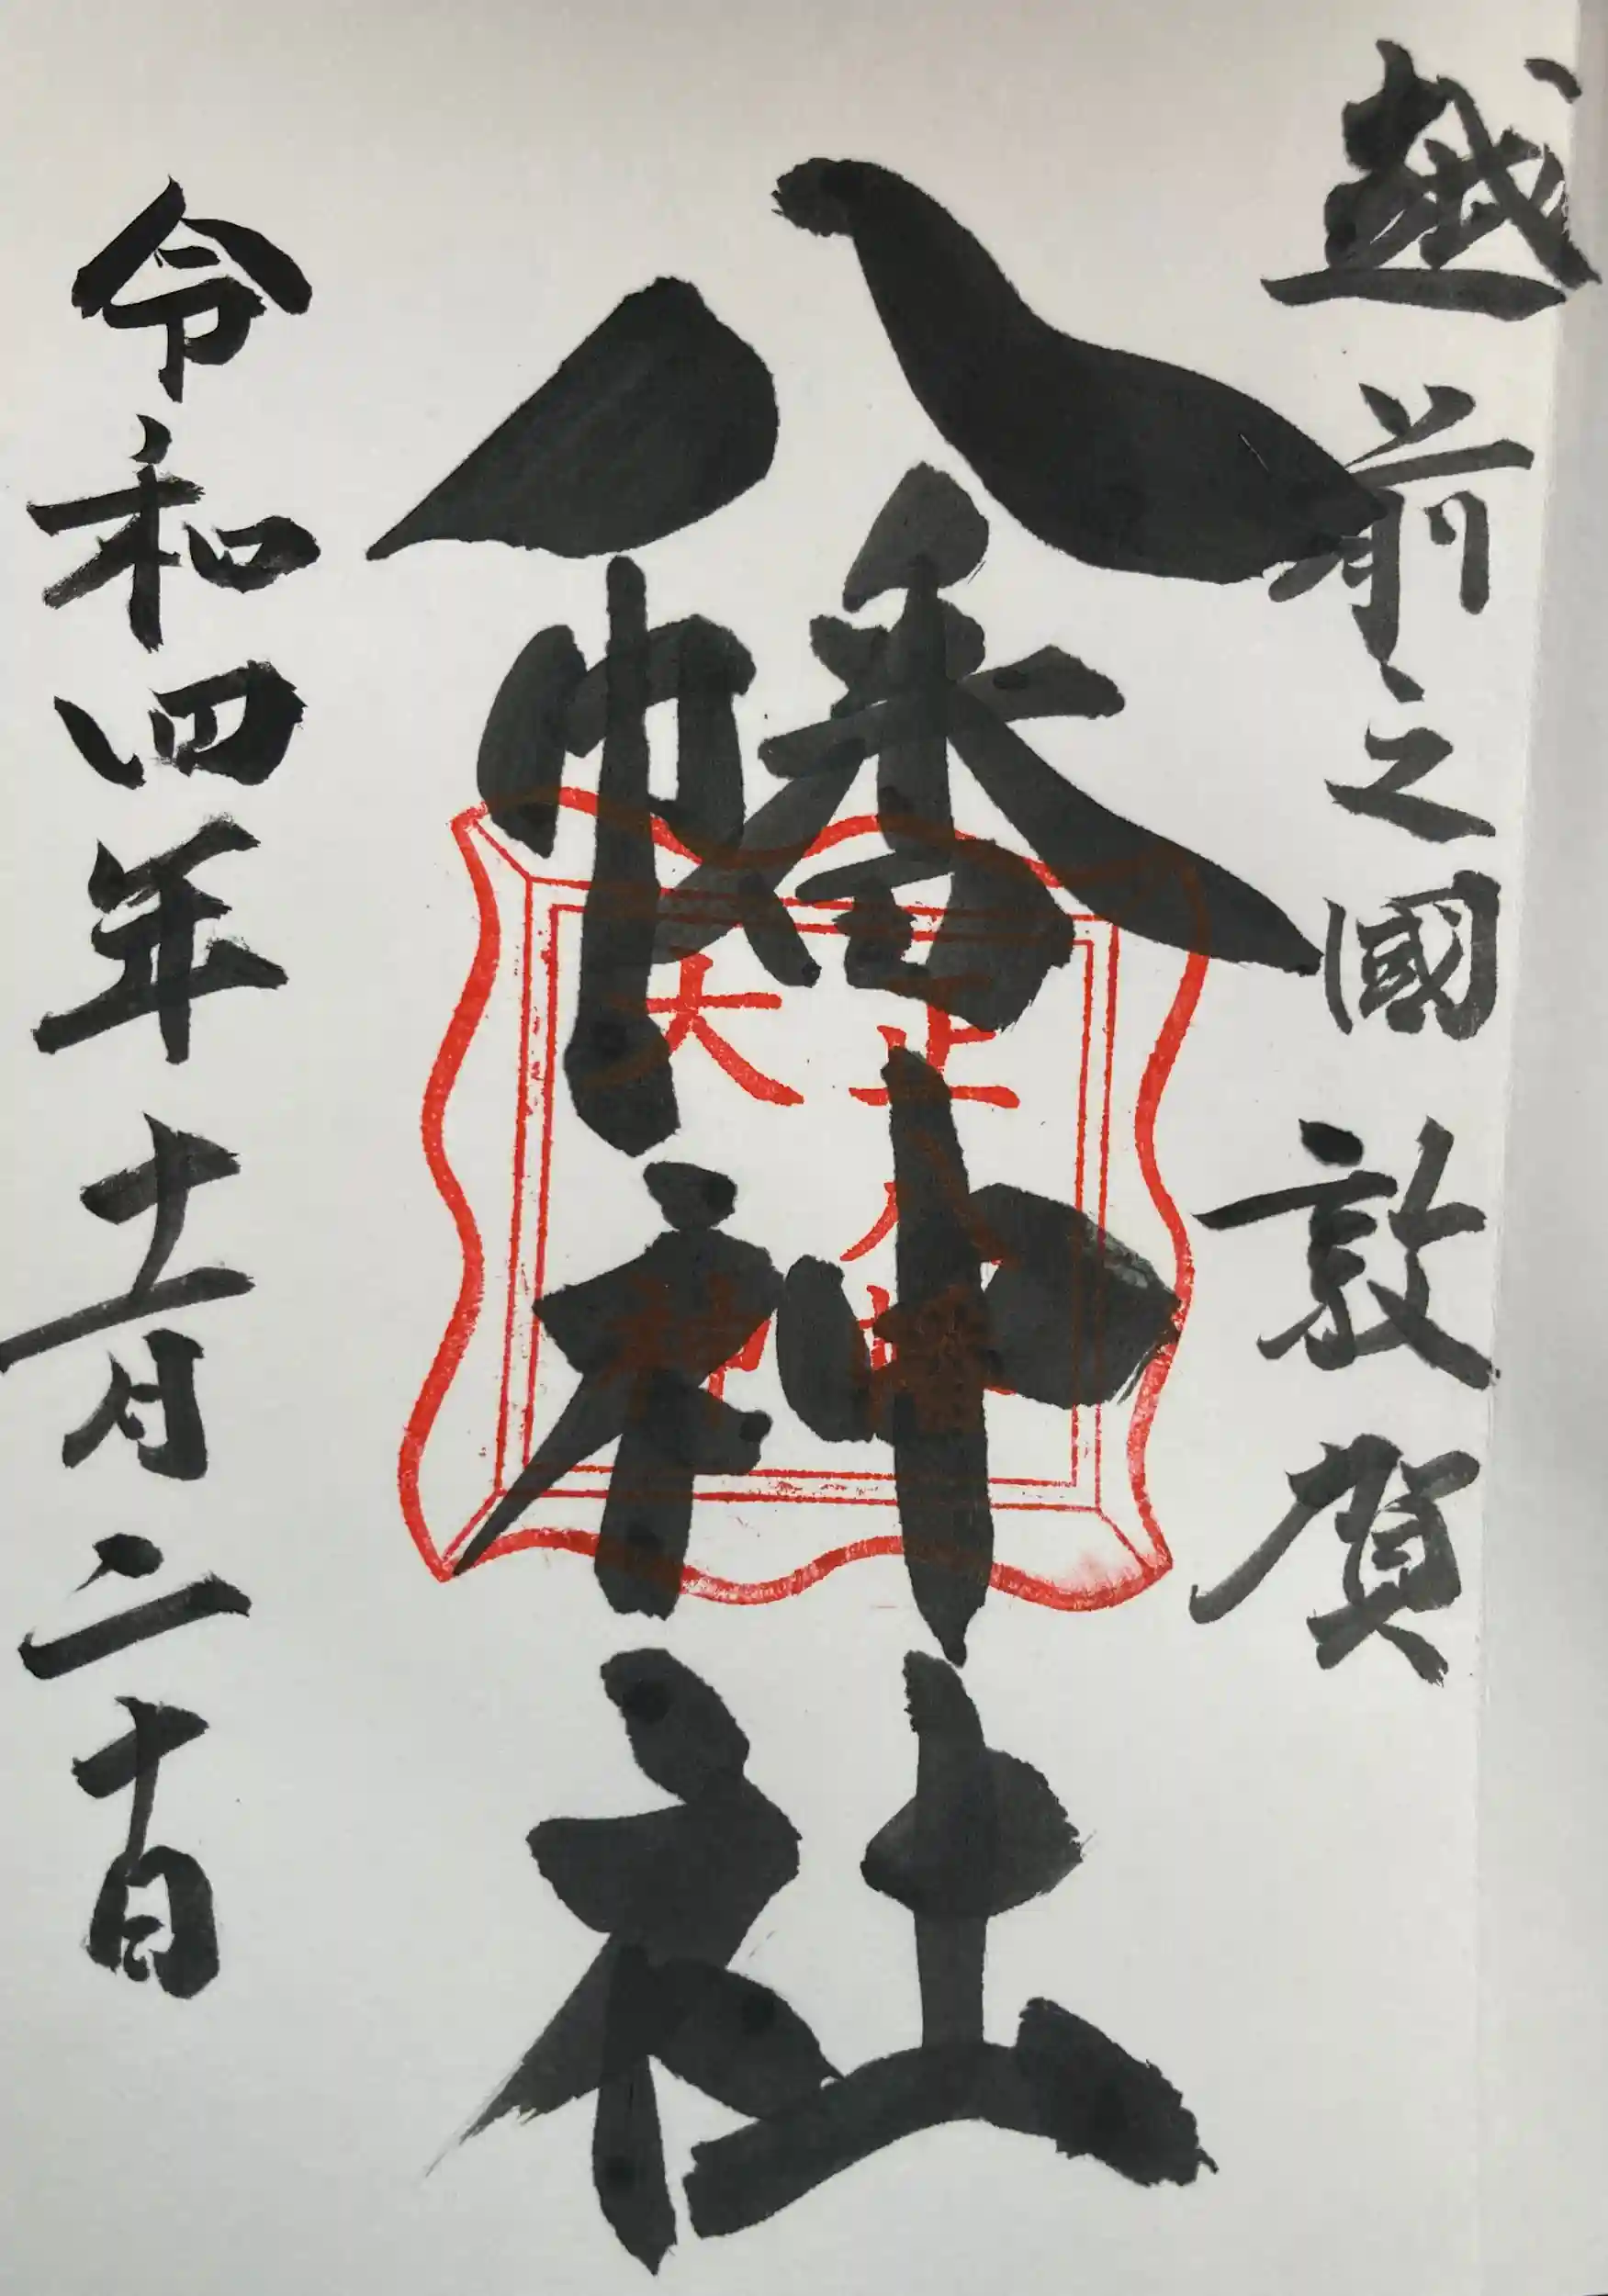 越前之國 敦賀
八幡神社
正八幡
大神
令和四年十一月二十日